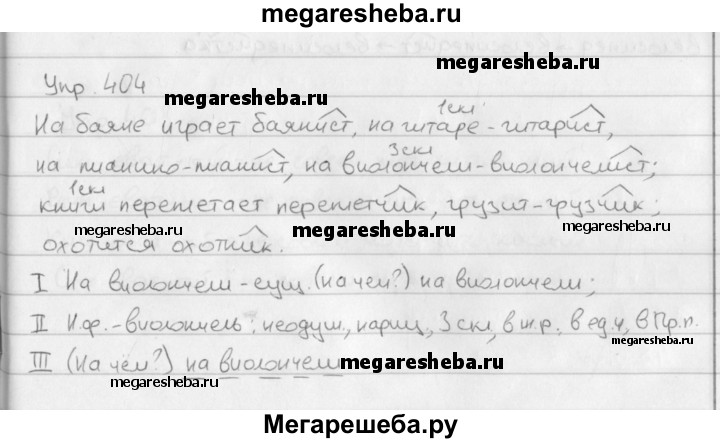 megaresheba.ru
Упр. 404
megaresheba.ru
1скл
На баяне играет баянист, на гитаре - гитарист,
3скл
на пианино - пианист, на виолончели - виолончелист;
1скл
книги переплетает переплетчик, грузит - грузчик;
megaresheba.ru
охотится охотник.
I На виолончели - сущ. (на чем?) на виолончели;
megaresheba.ru
II Н.ф. - виолончель; неодуш., нариц., 3 скл., в ж.р., в ед.ч, в Пр.п.
III (На чём?) на виолончели
megaresheba.ru
megaresheba.ru
Мегарешеба.ру